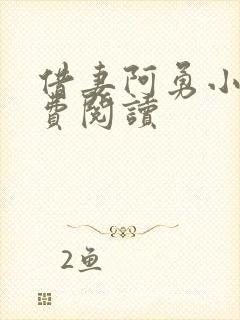 借妻阿勇小
費閱讀
2鱼